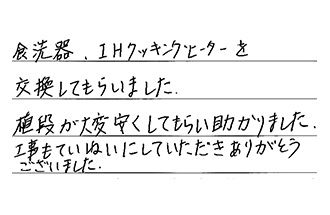 食洗器、IHクッキングヒーターを
交換してもらいました.
値段が大変安くしてもらい助かりました.
工事もていねいにしていただきありがとう
ございました.